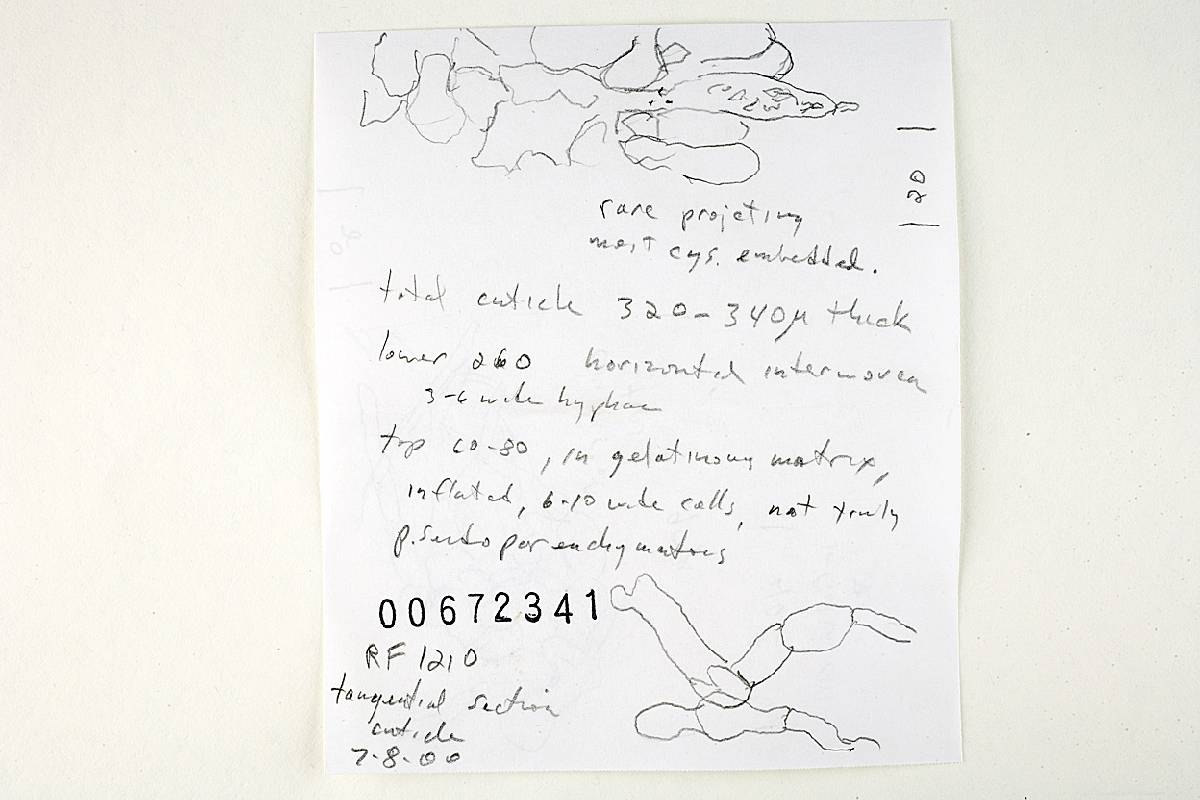 20
rare projeting
most cys. embedded.
total cuticle 320-340µ thick
lower 260 horizontal interwoven
3-6 wide hyphae
top 60-80, in gelatinous matrix,
inflated, 6-10 wide cells, not truly
pseudoparenchymatous
00672341
RF 1210
tangential section
cuticle
7-8-00